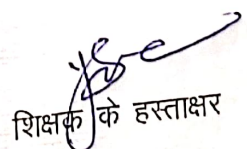 शिक्षक के हस्ताक्षर